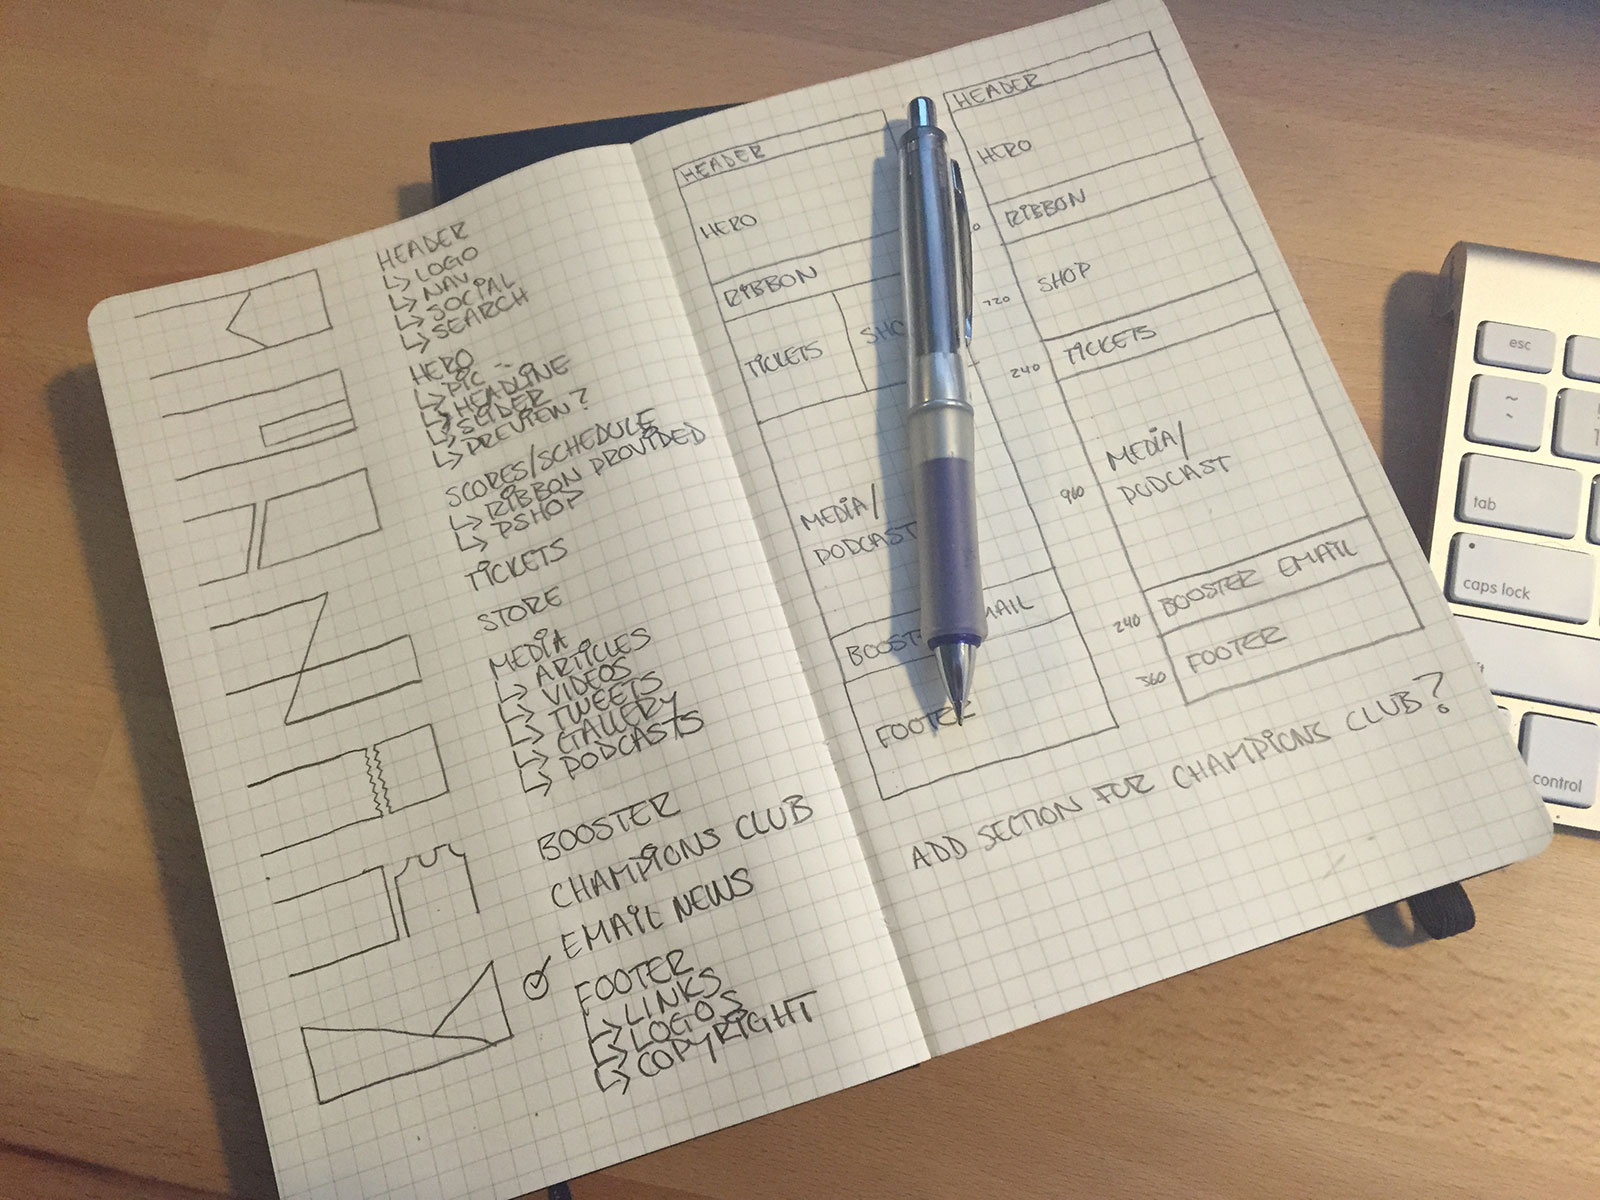 HEADER
↳ LOGO
↳ NAV
↳ SOCIAL
↳ SEARCH
HERO
↳ PIC
↳ HEADLINE
↳ SLIDER
↳ PREVIEW?
SCORES/SCHEDULE
↳ RIBBON PROVIDED
↳ PSHOP
TICKETS
STORE
MEDIA
↳ ARTICLES
↳ VIDEOS
↳ TWEETS
↳ GALLERY
↳ PODCASTS
BOOSTER
CHAMPIONS CLUB
EMAIL NEWS
FOOTER
↳ LINKS
↳ LOGOS
↳ COPYRIGHT
HEADER
HERO
RIBBON
TICKETS
MEDIA/
PODCAST
FOOTER
HEADER
HERO
RIBBON
SHOP
720
TICKETS
240
MEDIA/
PODCAST
960
BOOSTER EMAIL
240
FOOTER
360
ADD SECTION FOR CHAMPIONS CLUB?
esc
~
tab
caps lock
control